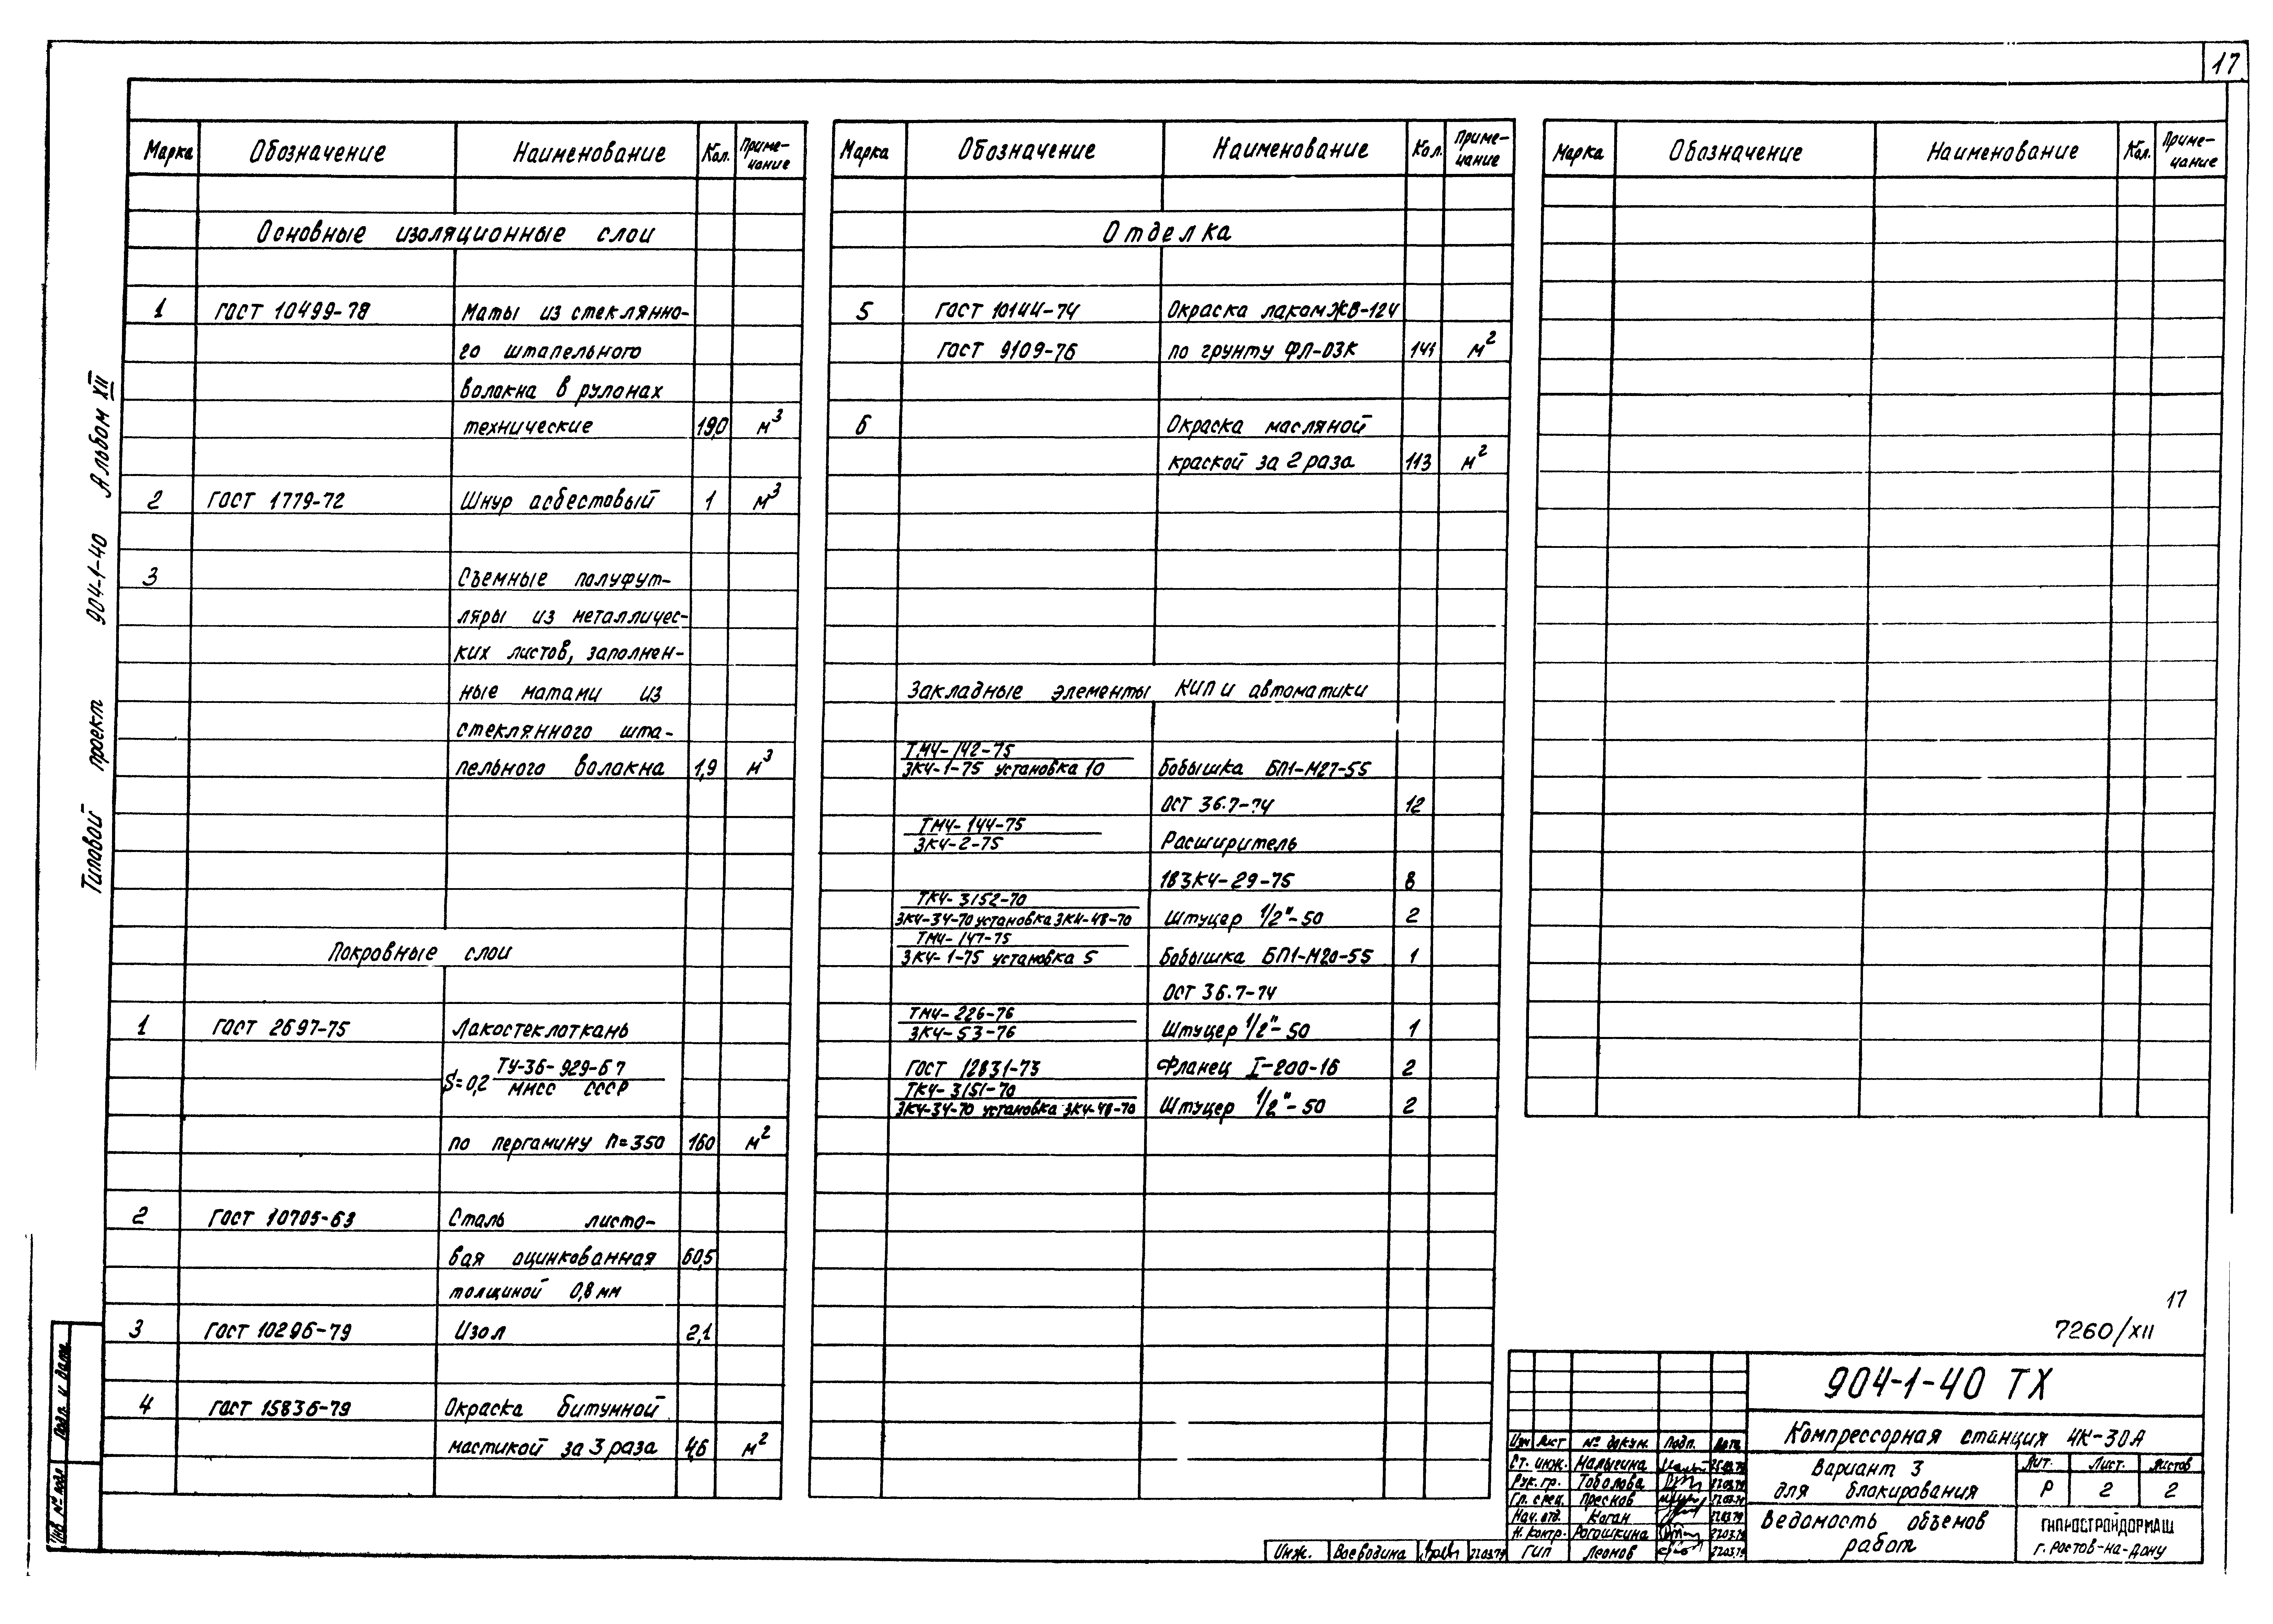 17
Марка Обозначение Наименование Кол. Приме-чание
Основные изоляционные слои
1 ГОСТ 10499-78 Маты из стеклянно-
го штапельного
волокна в рулонах
технические 19,0 м³
2 ГОСТ 1779-72 Шнур асбестовый 1 м³
3 Съемные полуфут-
ляры из металличес-
ких листов, заполнен-
ные матами из
стеклянного шта-
пельного волокна 1,9 м³
Покровные слои
1 ГОСТ 2697-75 Лакостеклоткань
S=0,2 ТУ-36-929-67
ММСС СССР
по пергамину П=350 160 м²
2 ГОСТ 10705-63 Сталь листо-
вая оцинкованная 60,5
толщиной 0,8 мм
3 ГОСТ 10296-79 Изол 2,1
4 ГОСТ 15836-79 Окраска битумной
мастикой за 3 раза 4,6 м²
Марка Обозначение Наименование Кол. Приме-чание
Отделка
5 ГОСТ 10144-74 Окраска лаком ЖВ-124
ГОСТ 9109-76 по грунту ФЛ-03К 141 м²
6 Окраска масляной
краской за 2 раза 113 м²
Закладные элементы КИП и автоматики
ТМ4-142-75
ЗК4-1-75 установка 10 Бобышка БП1-М27-55
ОСТ 36.7-74 12
ТМ4-144-75
ЗК4-2-75 Расширитель
18ЗК4-29-75 8
ТК4-3152-70
ЗК4-34-70 установка ЗК4-48-70 Штуцер 1/2"-50 2
ТМ4-147-75
ЗК4-1-75 установка 5 Бобышка БП1-М20-55 1
ОСТ 36.7-74
ТМ4-226-76
ЗК4-53-76 Штуцер 1/2"-50 1
ГОСТ 12831-73 Фланец I-200-16 2
ТК4-3151-70
ЗК4-34-70 установка ЗК4-48-70 Штуцер 1/2"-50 2
Марка Обозначение Наименование Кол. Приме-чание
Типовой проект 904-1-40 Альбом XII
Инв. № подл. Подп. и дата
17
7260/XII
904-1-40 ТХ
Компрессорная станция 4К-30А
Вариант 3
для блокирования
Лит. Лист. Листов
Р 2 2
Ведомость объемов
работ
ГИПРОСТРОЙДОРМАШ
г. Ростов-на-Дону
Изм Лист № докум. Подп. Дата
Ст. инж. Малыгина
Рук. гр. Тоболова
Гл. спец. Пресков
Нач. отд. Коган
Н. контр. Рогошкина 22.03.79
ГИП Леонов 22.03.79
Инж. Воеводина 22.03.79